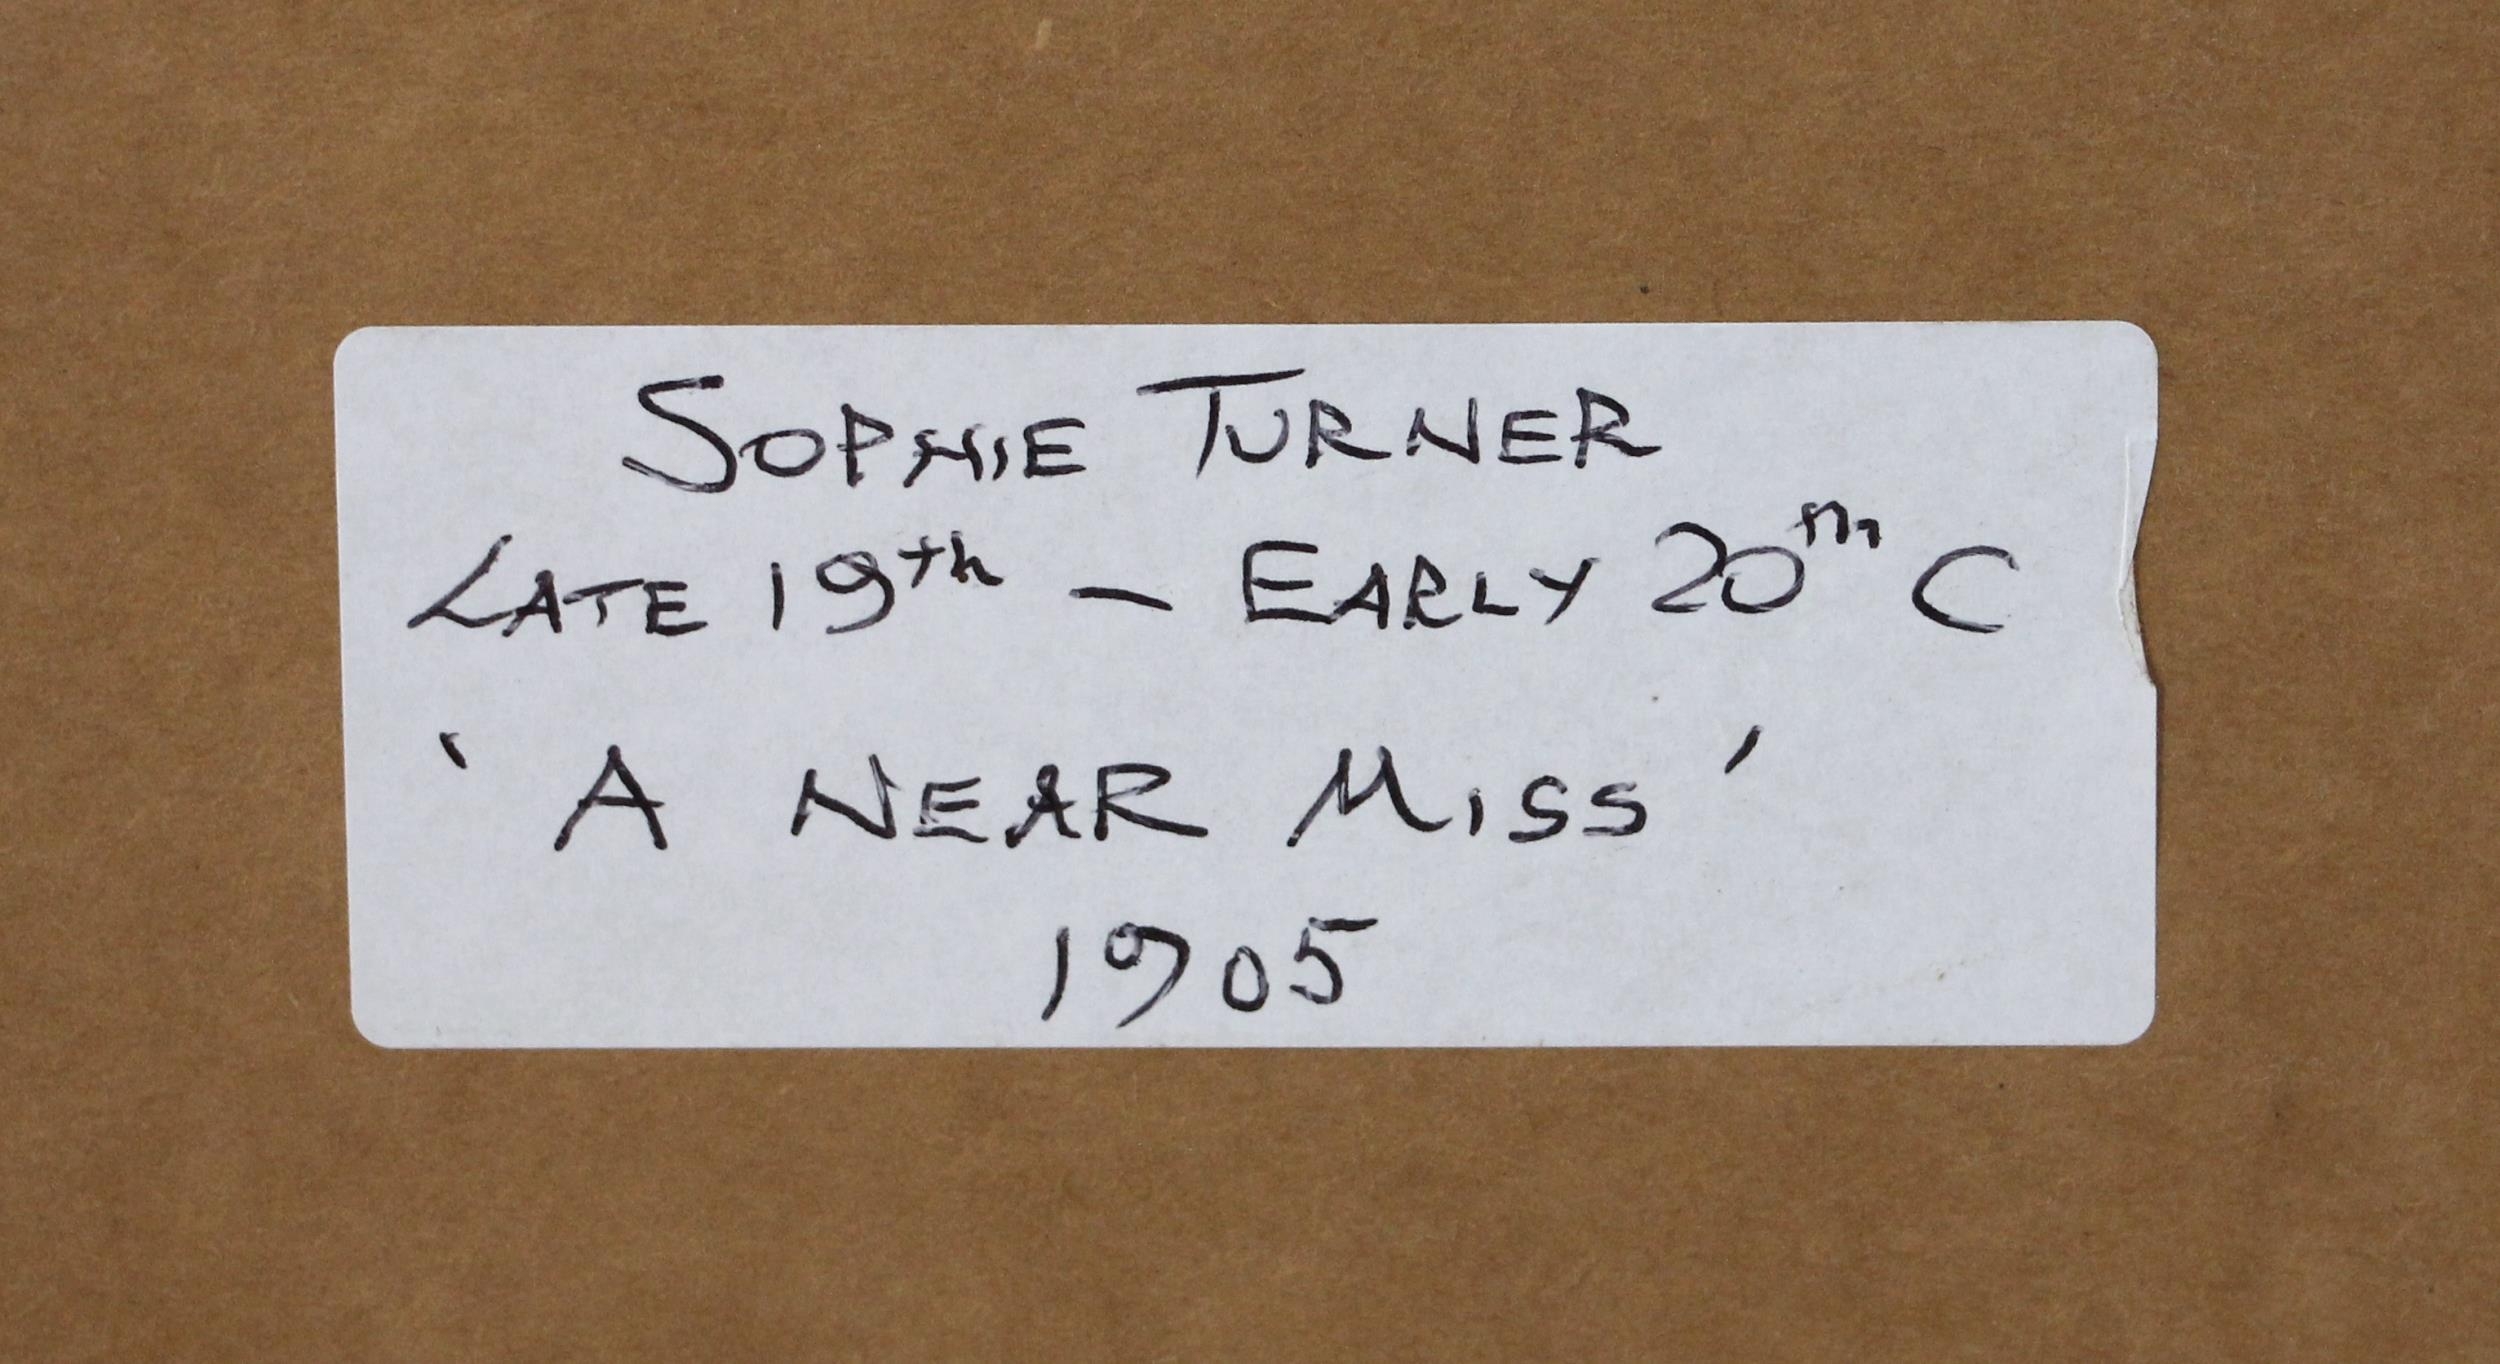 SOPHIE TURNER
LATE 19th – EARLY 20th C
‘A NEAR MISS’
1905